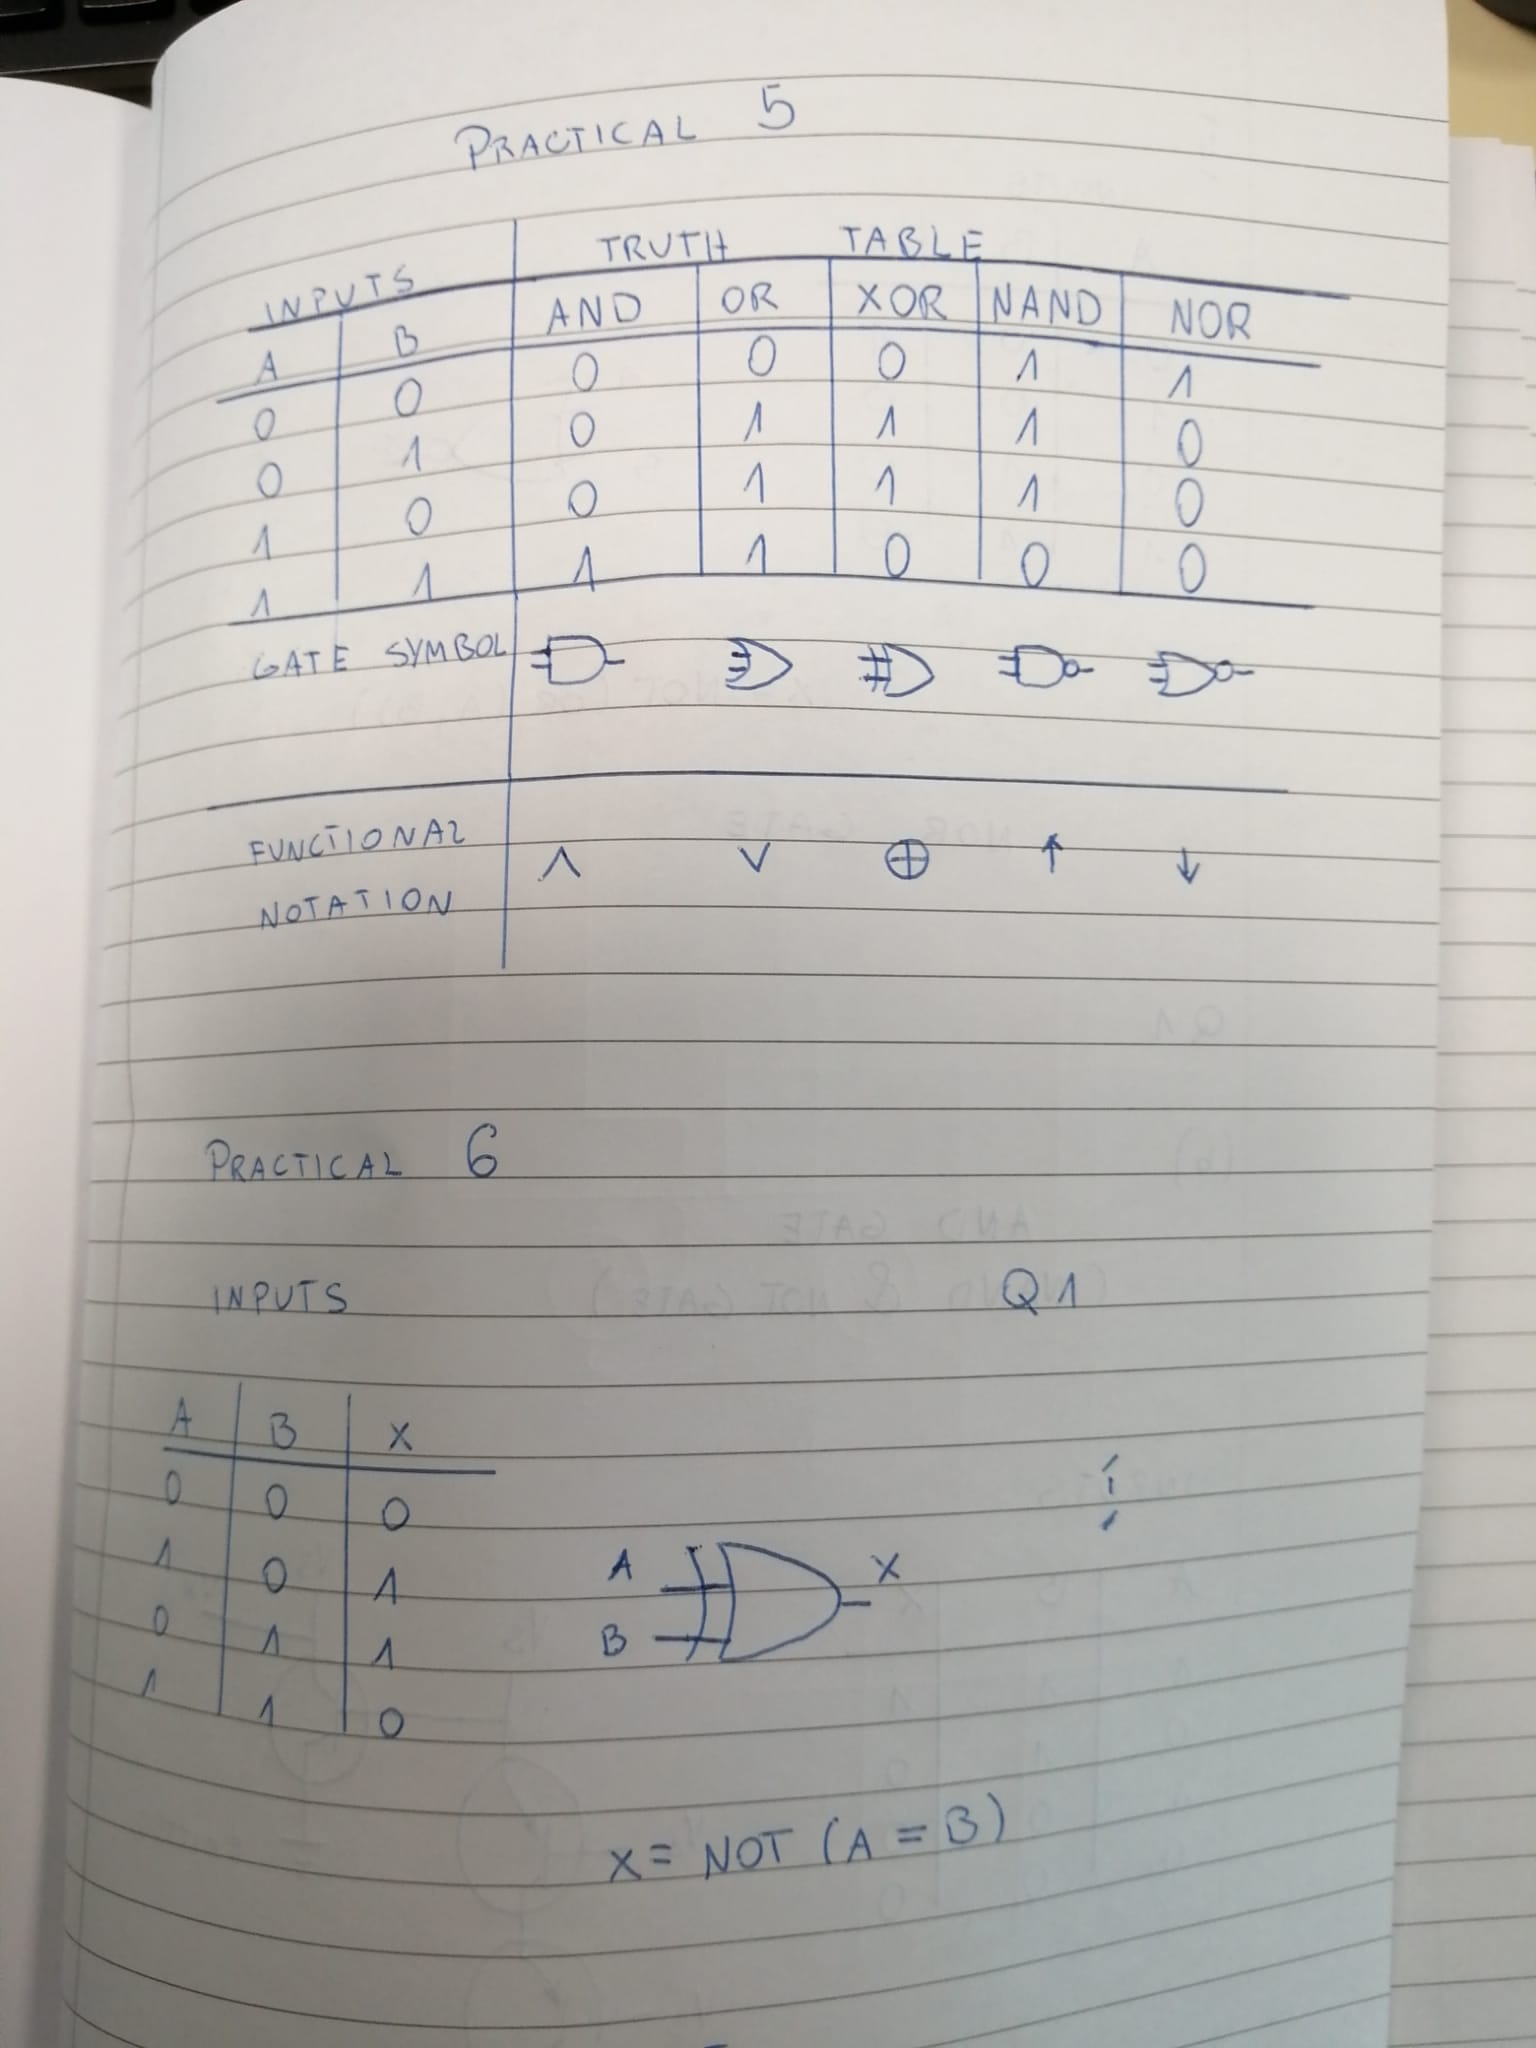 PRACTICAL 5
INPUTS TRUTH TABLE
A B AND OR XOR NAND NOR
0 0 0 0 0 1 1
0 1 0 1 1 1 0
1 0 0 1 1 1 0
1 1 1 1 0 0 0
GATE SYMBOL
FUNCTIONAL
NOTATION ∧ ∨ ⊕ ↑ ↓
PRACTICAL 6
INPUTS Q1
A B X
0 0 0
1 0 1
0 1 1
1 1 0
A X
B
X = NOT (A = B)